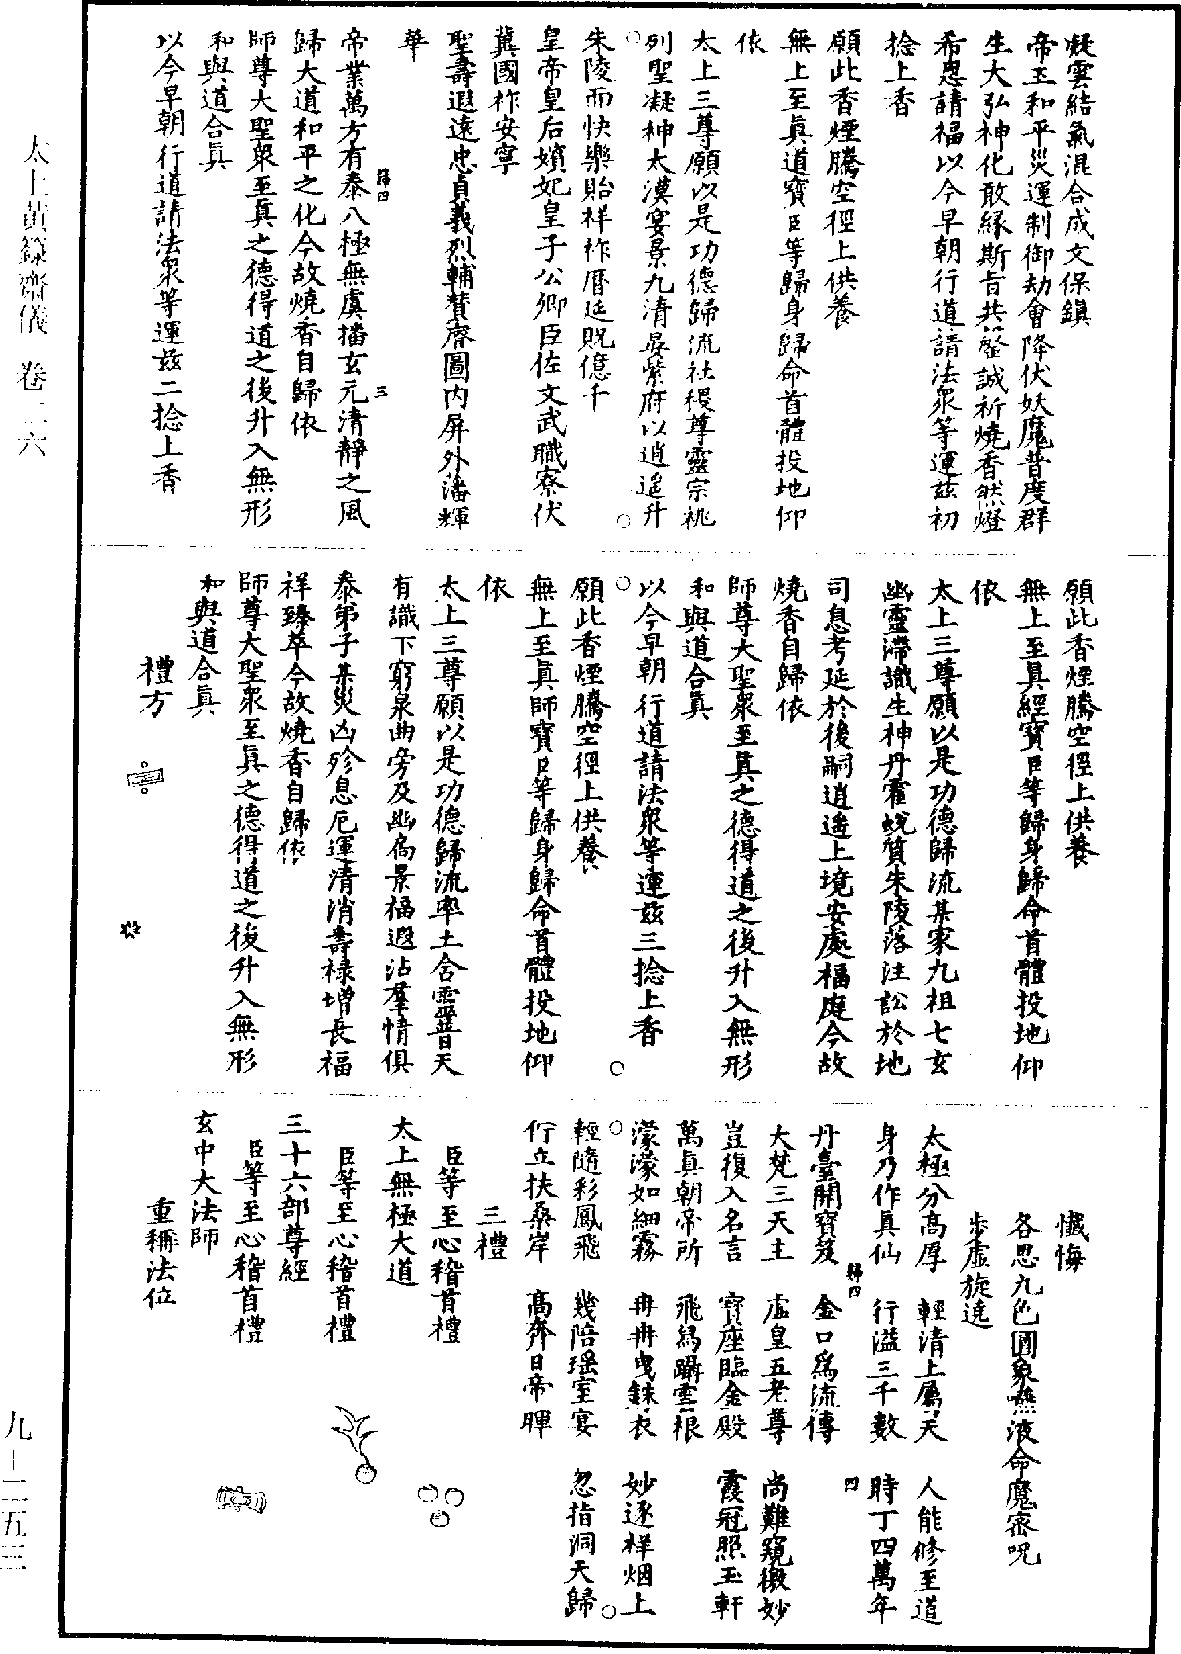 凝雲結氣混合成文保鎮
帝王和平災運制御劫會降伏妖魔普度群
生大弘神化敢緣斯旨共罄誠祈燒香然燈
希恩請福以今早朝行道請法衆等運茲初
捻上香
願此香煙騰空徑上供養
無上至眞道寶臣等歸身歸命首體投地仰
依
太上三尊願以是功德歸流社稷尊靈宗祧
列聖凝神太漠宴景九清晏紫府以逍遥升
朱陵而快樂貽祥祚曆延貺億千
皇帝皇后嬪妃皇子公卿臣佐文武職寮伏
冀國祚安寧
聖壽遐遠忠貞義烈輔賛齊圖内屏外藩輝
華
帝業萬方有泰八極無虞播玄元清靜之風
歸大道和平之化今故燒香自歸依
師尊大聖衆至眞之德得道之後升入無形
和與道合眞
以今早朝行道請法衆等運茲二捻上香
歸四
三
願此香煙騰空徑上供養
無上至眞經寶臣等歸身歸命首體投地仰
依
太上三尊願以是功德歸流某家九祖七玄
幽靈滯識生神丹霍蛻質朱陵落注訟於地
司息考延於後嗣逍遥上境安處福庭今故
燒香自歸依
師尊大聖衆至眞之德得道之後升入無形
和與道合眞
以今早朝行道請法衆等運茲三捻上香
願此香煙騰空徑上供養
無上至眞師寶臣等歸身歸命首體投地仰
依
太上三尊願以是功德歸流率土含靈普天
有識下窮泉曲旁及幽扃景福遐沾羣情俱
泰第子某災凶殄息厄運清消壽祿增長福
祥臻萃今故燒香自歸依
師尊大聖衆至眞之德得道之後升入無形
和與道合眞
禮方
懺悔
各思九色圓象嚥液命魔密呪
步虛旋遶
太極分高厚 輕清上屬天 人能修至道
身乃作眞仙 行溢三千數 時丁四萬年
丹臺開寶笈 金口爲流傳
歸四
四
大梵三天主 虛皇五老尊 尚難窺微妙
豈復入名言 寳座臨金殿 霞冠照玉軒
萬眞朝帝所 飛舄躡雲根
濛濛如細霧 冉冉曳銖衣 妙逐祥烟上
輕隨彩鳳飛 幾陪瑶室宴 忽指洞天歸
佇立扶桑岸 高奔日帝暉
三禮
臣等至心稽首禮
太上無極大道
臣等至心稽首禮
三十六部尊經
臣等至心稽首禮
玄中大法師
重稱法位
太上黄籙齋儀 卷二六
九—二五三